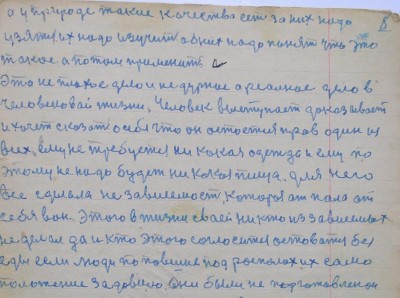 а у природе такие качества есть за них надо
узяться их надо изучить об них надо понять что это
такое а потом применить
Это не плохое дело и не дурное а реальное дело в
человеческой жизни. Человек выступает доказывает
и хочет сказать о себе что он остается прав один из
всех, ему не требуется никакая одежда и ему по
этому не надо будет никакая пища. для него
все сделала независемость которая отпала от
себя вон. Этого в жизни своей никто из зависемых
не делал да и кто этого согласится оставаться без
еды если люди попавшие под расположих само
положение задовило. Они были не подготовленои